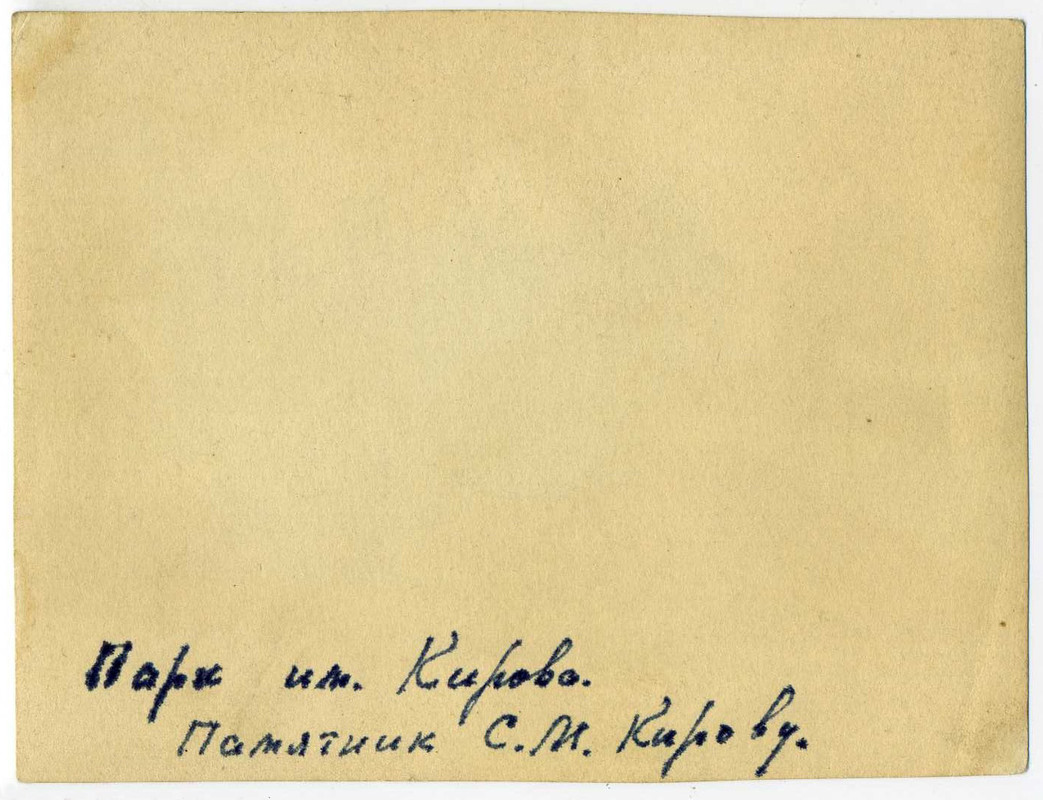 Парк им. Кирова.
Памятник С.М. Кирову.